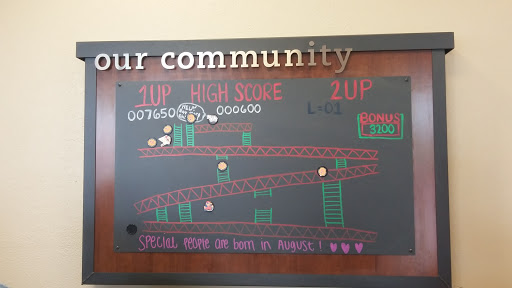 our community
1UP HIGH SCORE 2UP
007650 000600 L=01
BONUS
3200!
Special people are born in August!